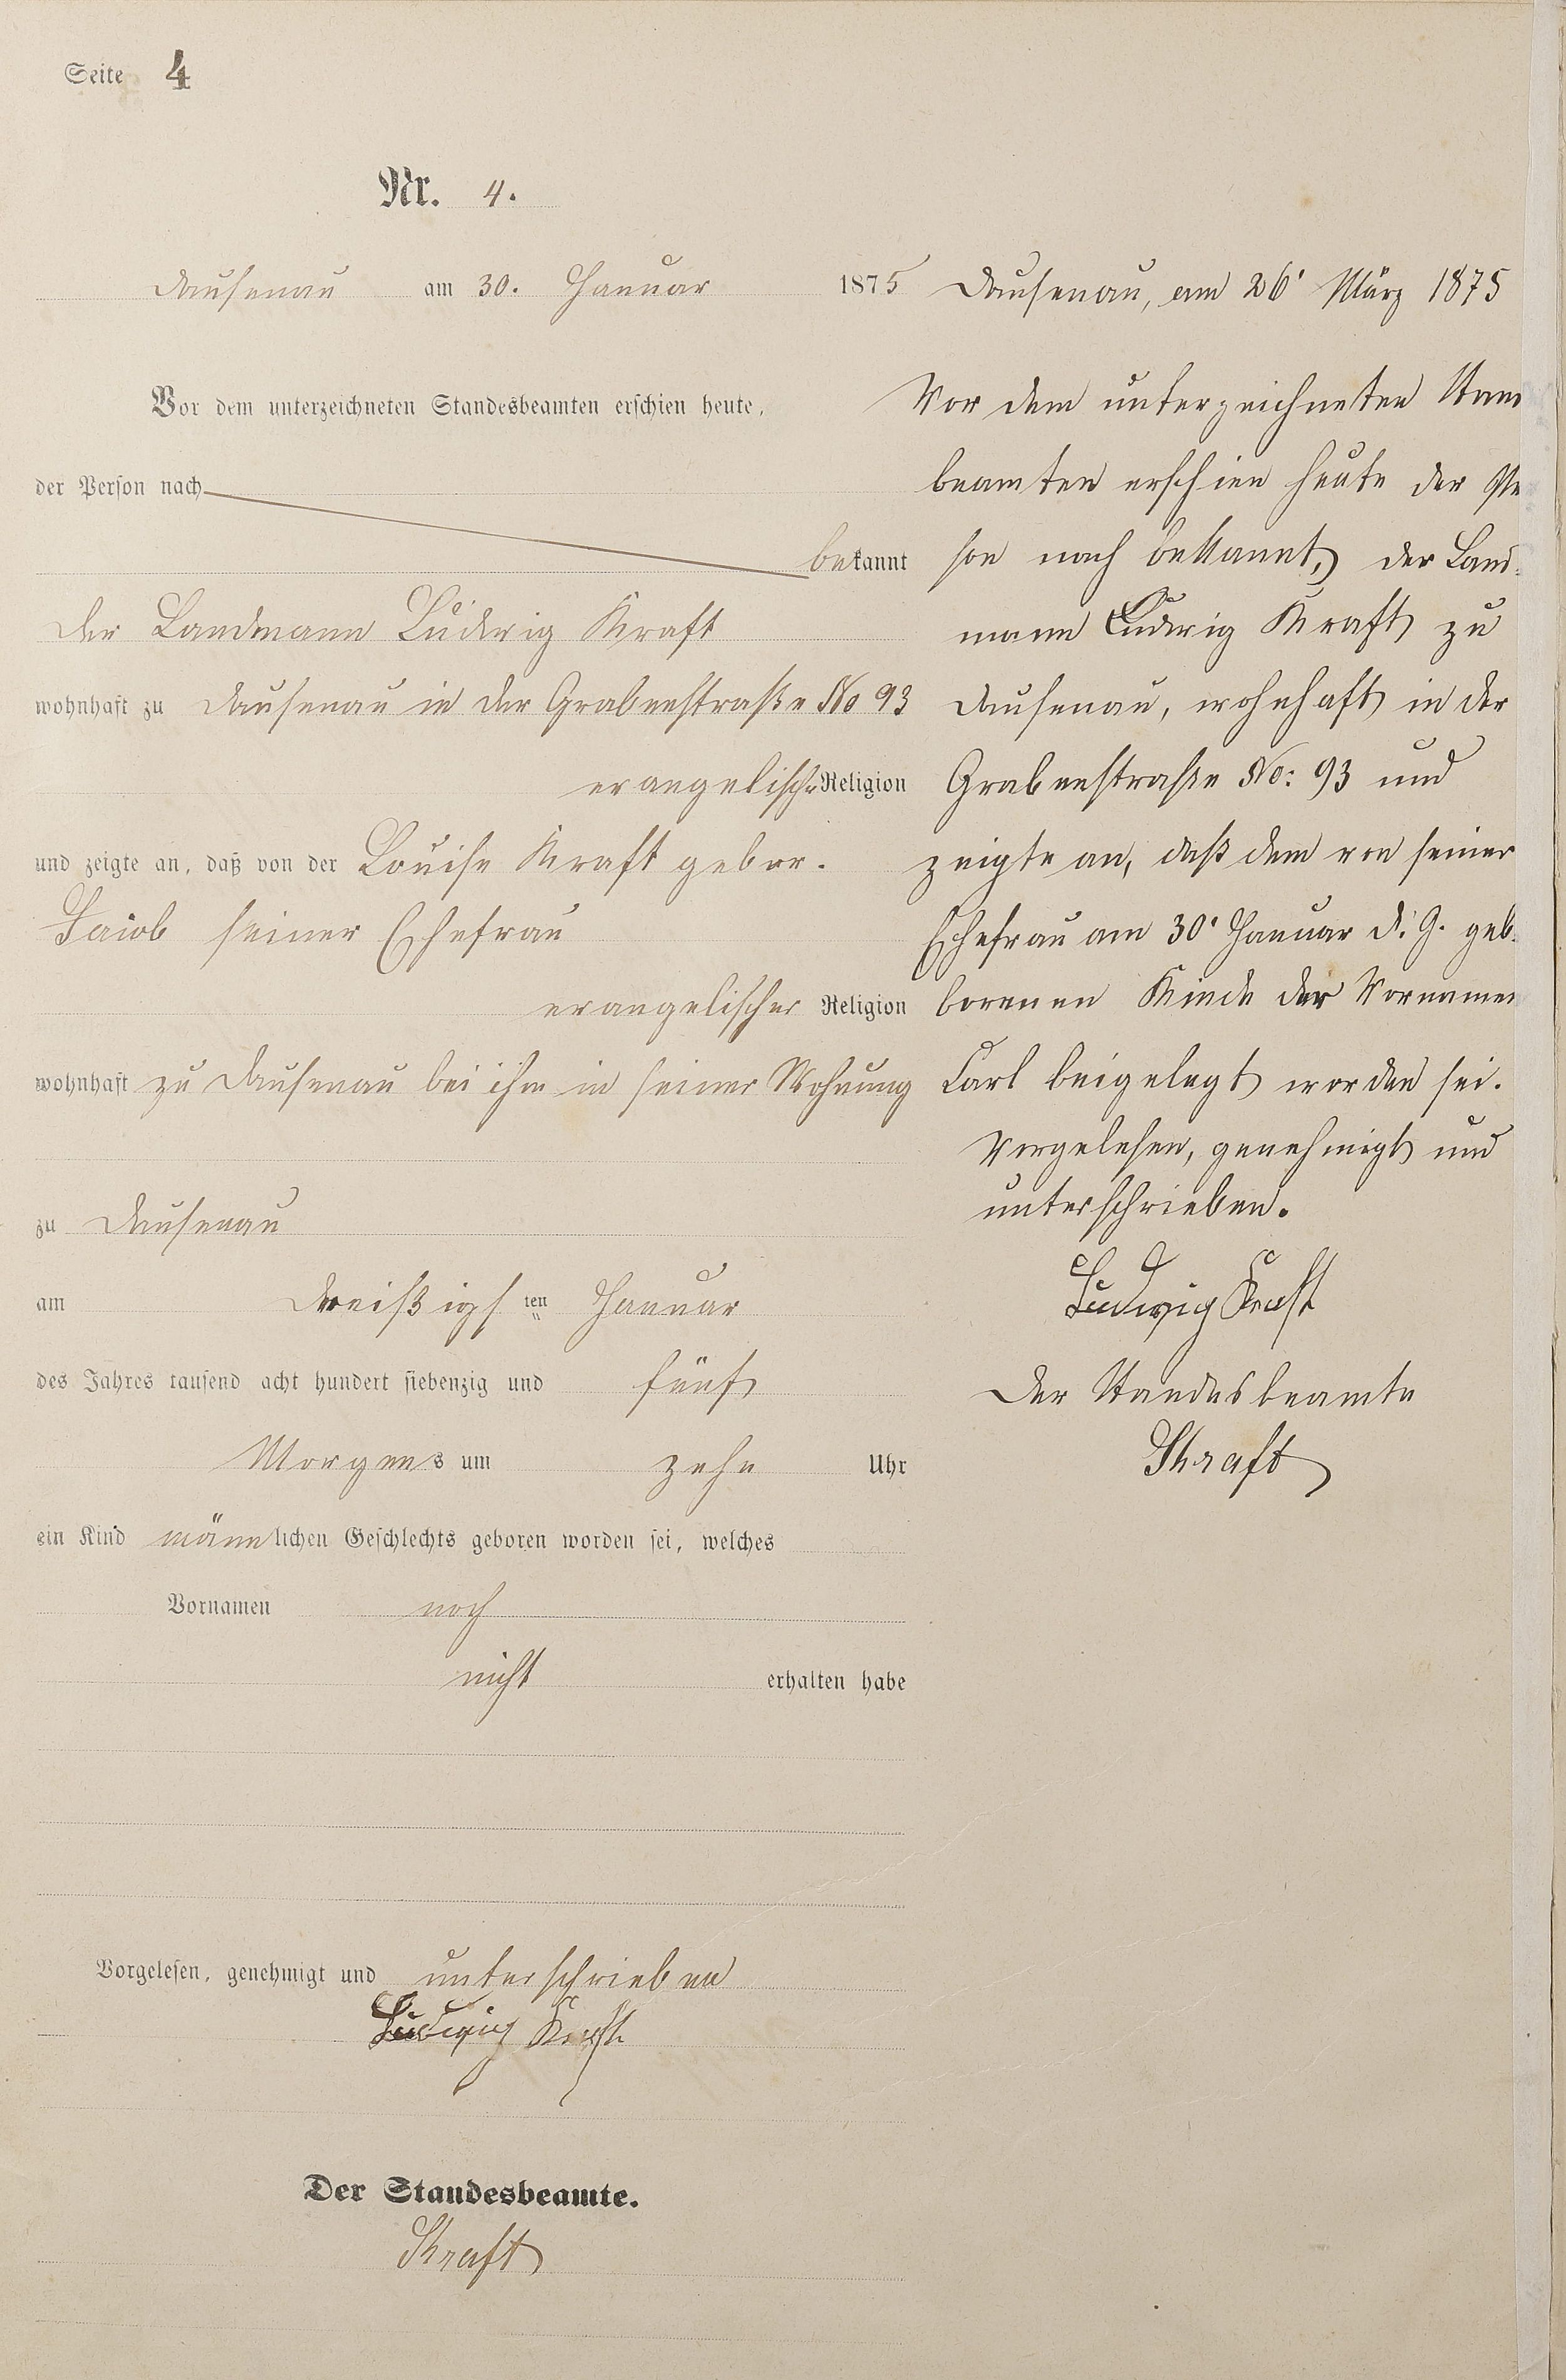 Seite 4
Nr. 4.
Dausenau am 30. Januar 1875
Vor dem unterzeichneten Standesbeamten erschien heute,
der Person nach
bekannt
der Landmann Ludwig Kraft
wohnhaft zu Dausenau in der Grabenstraße No 93
evangelischer Religion
und zeigte an, daß von der Louise Kraft gebor.
seiner Ehefrau
evangelischer Religion
wohnhaft zu Dausenau bei ihm in seiner Wohnung
zu Dausenau
am dreißigsten Januar
des Jahres tausend acht hundert siebenzig und fünf
Morgens um zehn Uhr
ein Kind männlichen Geschlechts geboren worden sei, welches
Vornamen noch
nicht erhalten habe
Vorgelesen, genehmigt und unterschrieben
Ludwig Kraft
Der Standesbeamte.
Kraft
Dausenau, am 26' März 1875
Vor dem unterzeichneten Stand
beamten erschien heute der Per
son nach bekannt, der Land-
mann Ludwig Kraft zu
Dausenau, wohnhaft in der
Grabenstraße No: 93 und
zeigte an, daß dem von seiner
Ehefrau am 30' Januar d. J. geb-
borenen Kinde der Vornamen
Carl beigelegt worden sei.
Vorgelesen, genehmigt und
unterschrieben.
Ludwig Kraft
Der Standesbeamte
Kraft